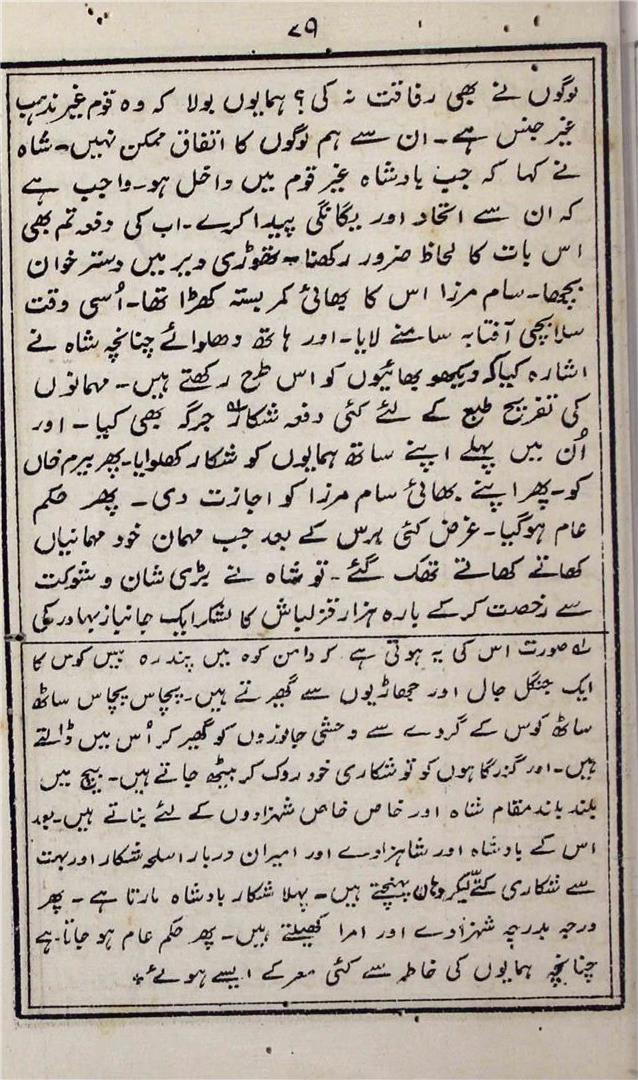 ۷۹
لوگوں نے بھی رفاقت نہ کی؟ ہمایوں بولا کہ وہ قوم غیر مذہب
غیر جنس ہے۔ ان سے ہم لوگوں کا اتفاق ممکن نہیں۔ شاہ
نے کہا کہ جب بادشاہ غیر قوم میں داخل ہو۔ واجب ہے
کہ ان سے اتحاد اور یگانگی پیدا کرے۔ اب کی دفعہ تم بھی
اس بات کا لحاظ ضرور رکھنا۔ تھوڑی دیر میں دسترخوان
بچھا۔ سام مرزا اس کا بھائی کمر بستہ کھڑا تھا۔ اُسی وقت
سلابچی آفتابہ سامنے لایا۔ اور ہاتھ دھلوائے چنانچہ شاہ نے
اشارہ کیا کہ دیکھو بھائیوں کو اس طرح رکھتے ہیں۔ مہمانوں
کی تفریح طبع کے لئے کئی دفعہ شکار جرگہ بھی کیا۔ اور
اُن میں پہلے اپنے ساتھ ہمایوں کو شکار کھلوایا۔ پھر بیرم خاں
کو۔ پھر اپنے بھائی سام مرزا کو اجازت دی۔ پھر حکم
عام ہوگیا۔ غرض کئی برس کے بعد جب مہمان خود مہمانیاں
کھاتے کھاتے تھک گئے۔ تو شاہ نے بڑی شان و شوکت
سے رخصت کر کے بارہ ہزار قزلباش کا لشکر ایک جانباز بہادر کی
لہ صورت اس کی یہ ہوتی ہے کہ دامن کوہ میں پندرہ بیس کوس کا
ایک جنگل جال اور جھاڑیوں سے گھیرتے ہیں۔ پچاس پچاس ساٹھ
ساٹھ کوس کے گردے سے وحشی جانوروں کو گھیر کر اُس میں ڈالتے
ہیں۔ اور گزرگاہوں کو تو شکاری خود روک کر بیٹھ جاتے ہیں۔ بیچ میں
بلند بلند مقام شاہ اور خاص خاص شہزادوں کے لئے بناتے ہیں۔ بعد
اس کے بادشاہ اور شاہزادے اور امیران دربار اسلحہ شکار اور بہت
سے شکاری کتے لیکر وہاں پہنچتے ہیں۔ پہلا شکار بادشاہ مارتا ہے۔ پھر
درجہ بدرجہ شہزادے اور امرا کھیلتے ہیں۔ پھر حکم عام ہو جاتا ہے
چنانچہ ہمایوں کی خاطر سے کئی معرکے ایسے ہوئے٭